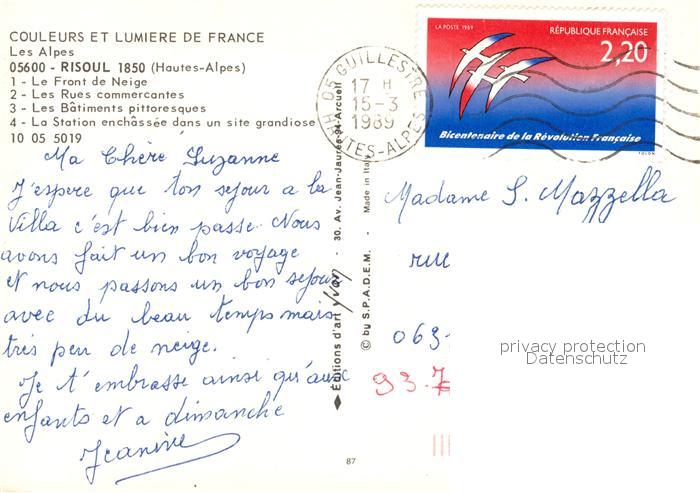 COULEURS ET LUMIERE DE FRANCE
Les Alpes
05600 - RISOUL 1850 (Hautes-Alpes)
1 - Le Front de Neige
2 - Les Rues commerçantes
3 - Les Bâtiments pittoresques
4 - La Station enchâssée dans un site grandiose
10 05 5019
Ma Chère Suzanne
J'espere que ton sejour a la
Villa c'est bien passe. Nous
avons fait un bon voyage
et nous passons un bon sejour
avec du beau temps mais
très peu de neige.
Je t'embrasse ainsi qu'aux
enfants et a dimanche
Jeanine
Éditions d'art yvon - 30, Av. Jean-Jaurès-94-Arcueil
© by S.P.A.D.E.M. - Made in Italy
87
05 GUILLESTRE
17 H
15-3
1989
HAUTES-ALPES
LA POSTE 1989
RÉPUBLIQUE FRANÇAISE
2,20
Bicentenaire de la Révolution Française
FOLON
Madame S. Mazzella
rue
063
93.7
privacy protection
Datenschutz